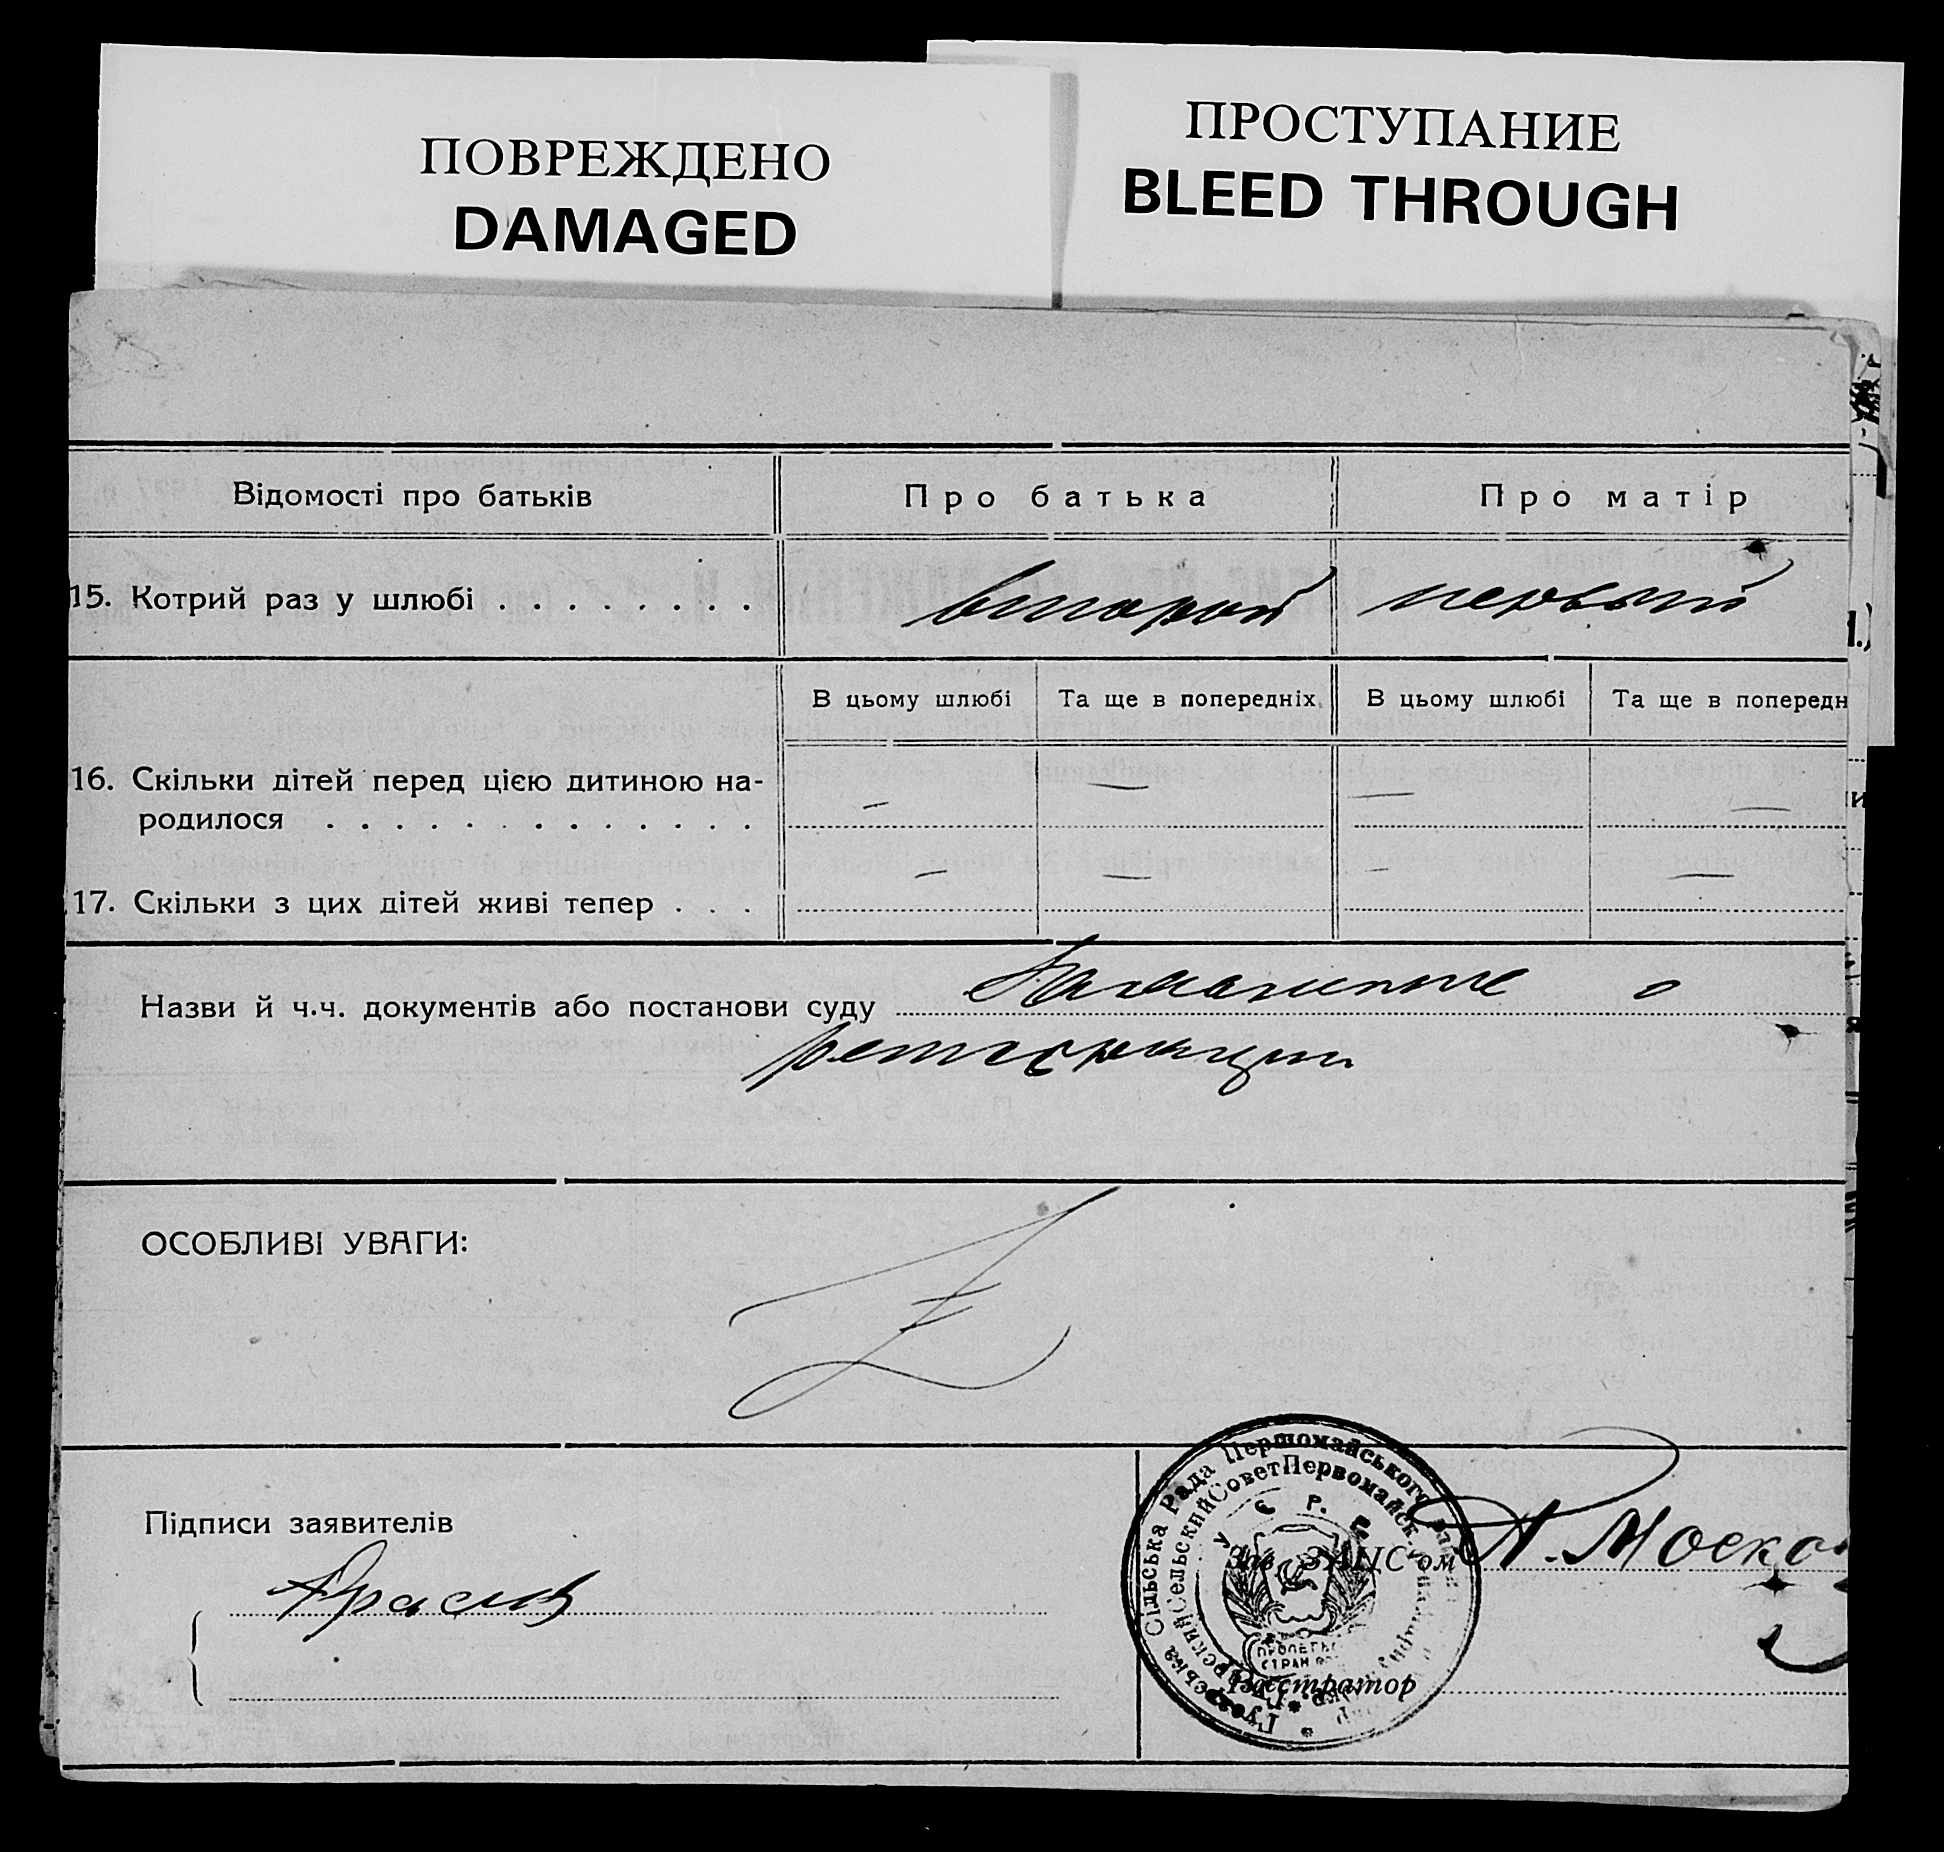 ПОВРЕЖДЕНО
DAMAGED
ПРОСТУПАНИЕ
BLEED THROUGH
Відомості про батьків Про батька Про матір
15. Котрий раз у шлюбі . . . . . . . . второй первый
В цьому шлюбі Та ще в попередніх В цьому шлюбі Та ще в попередн
16. Скільки дітей перед цією дитиною на-
родилося . . . . . . . . . . . . . — — — —
17. Скільки з цих дітей живі тепер . . . — — — —
Назви й ч.ч. документів або постанови суду о
ОСОБЛИВІ УВАГИ:
Підписи заявителів
Сільська Рада Першомайського
Сельский Совет Первомайск.
У. С. Р. Р.
Зав. ЗАЦС'ом А. Моско
Реєстратор